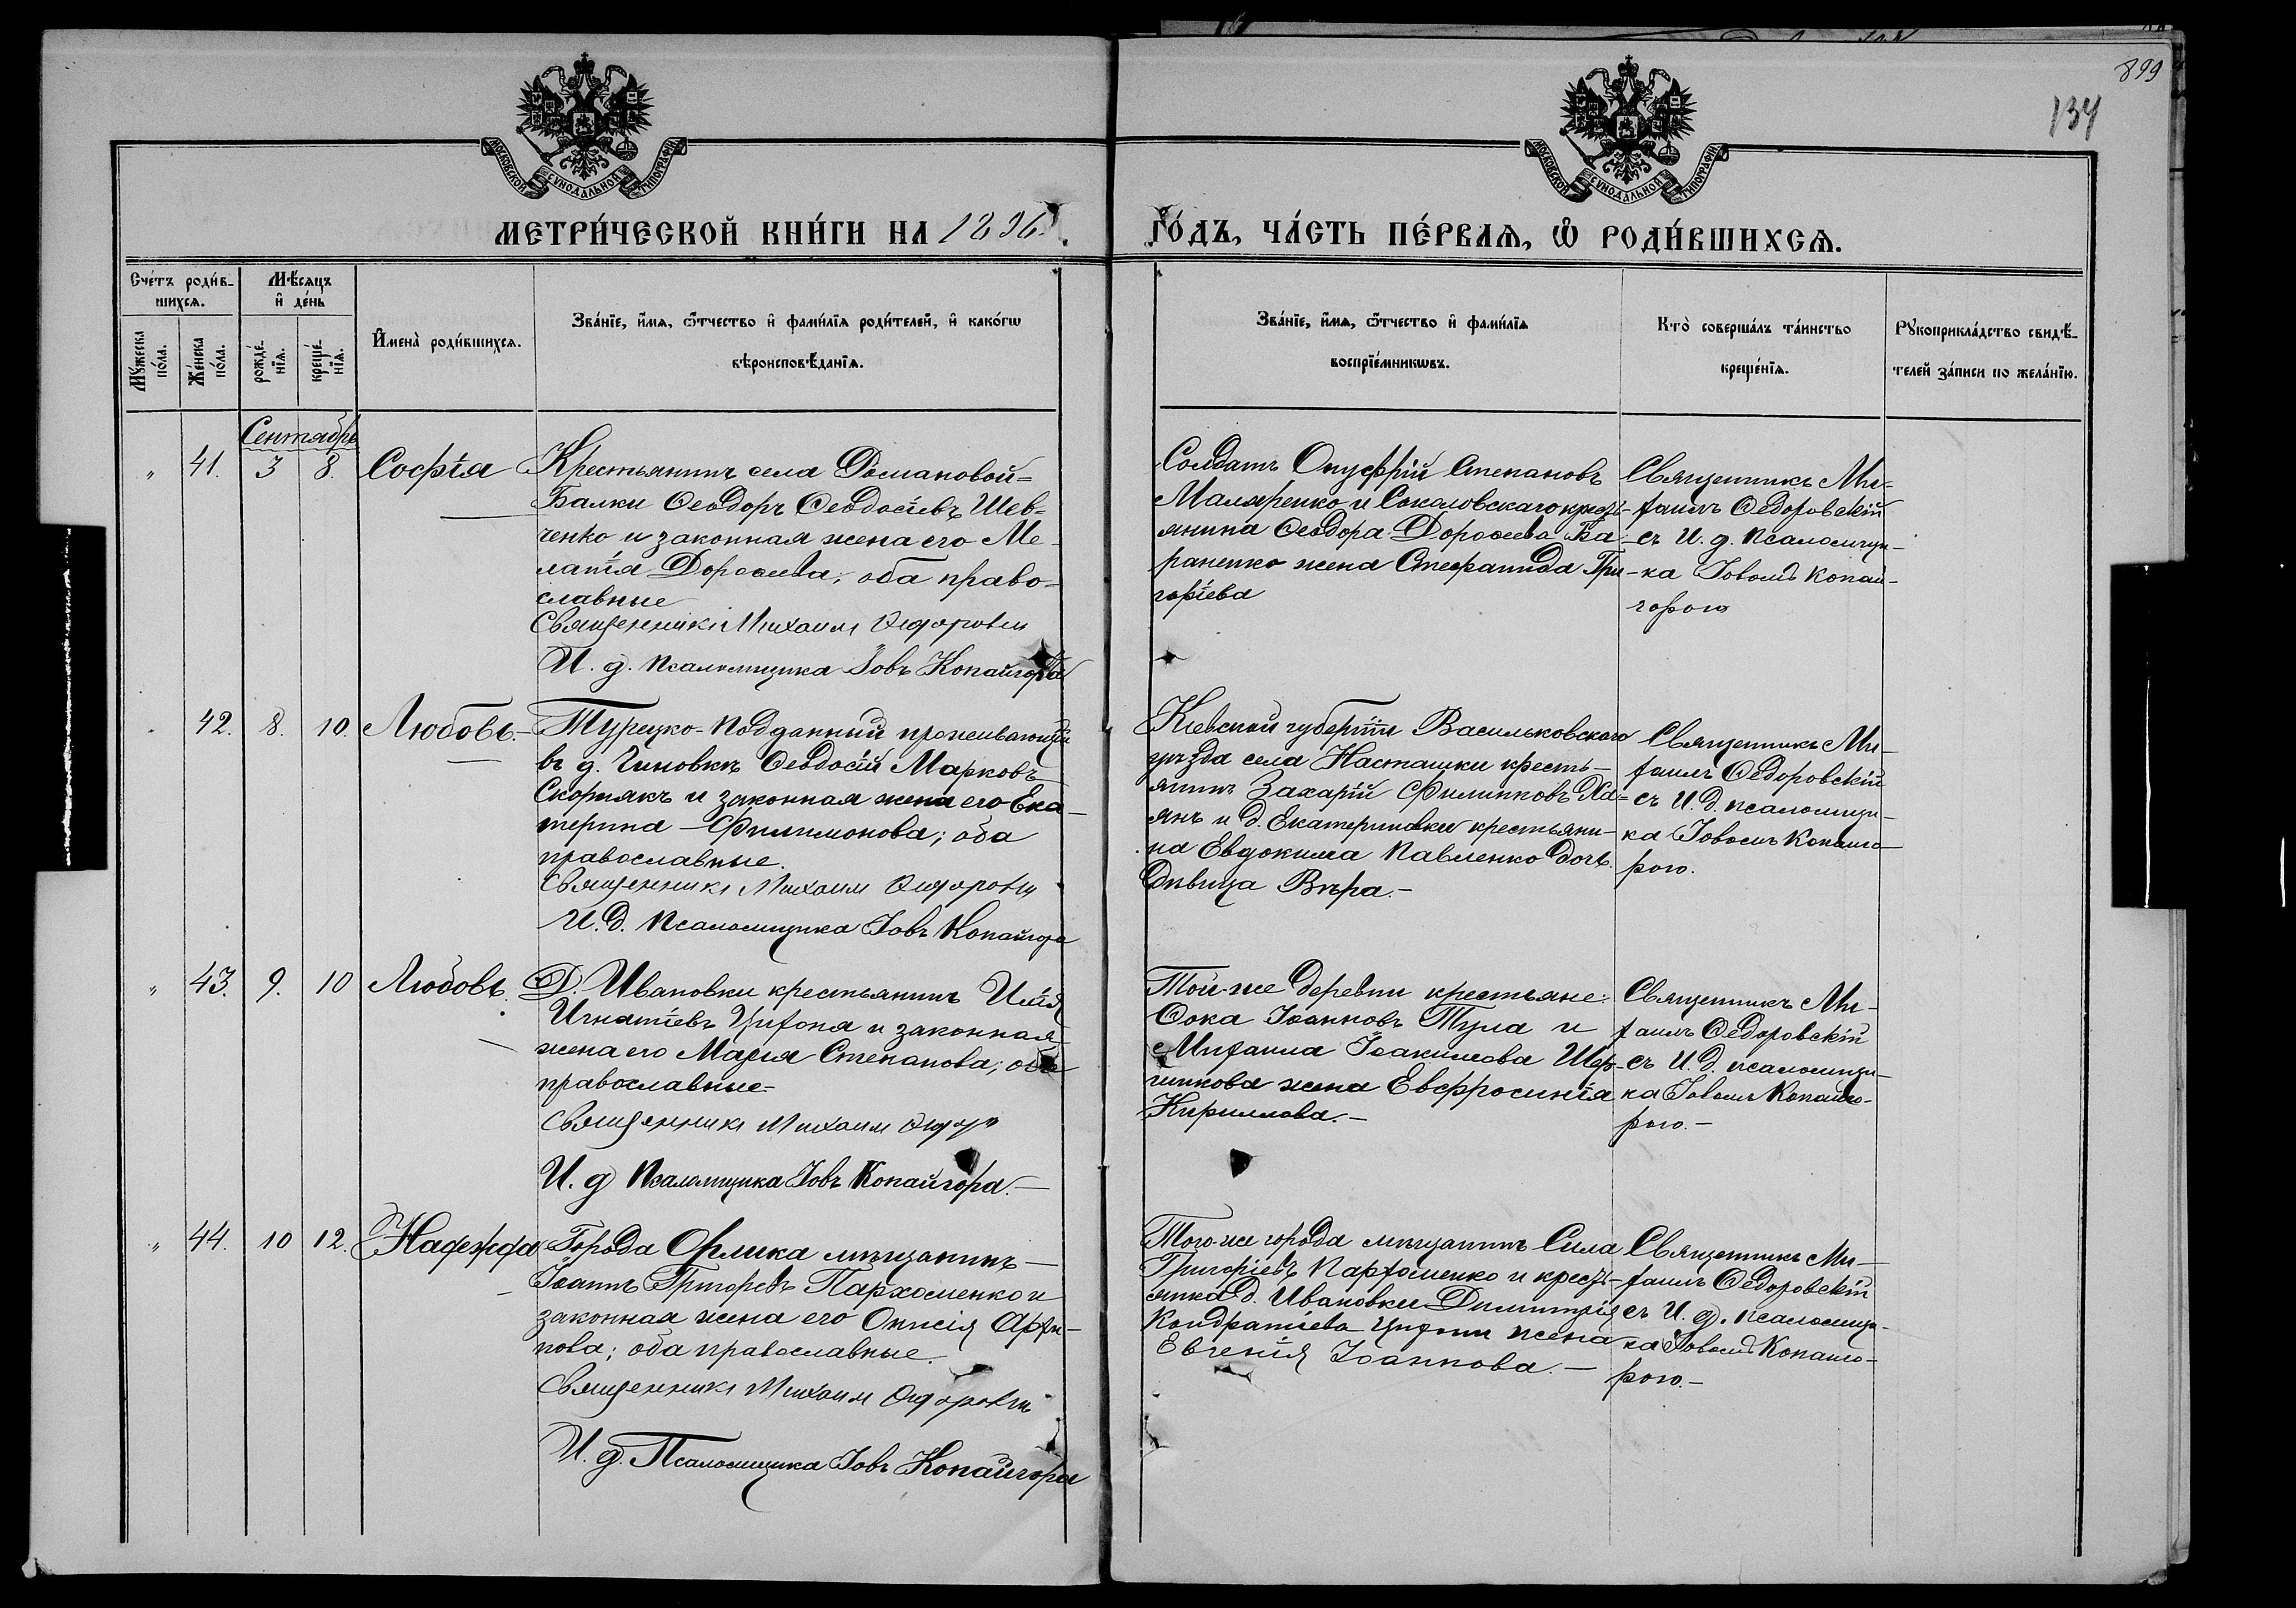 899
134
МОСКОВСКОЙ СУНОДАЛЬНОЙ ТИПОГРАФІИ
МОСКОВСКОЙ СУНОДАЛЬНОЙ ТИПОГРАФІИ
МЕТРИ́ЧЕСКОЙ КНИ́ГИ НА 1896.
ГО́ДЪ, ЧА́СТЬ ПЕ́РВАѦ, Ѡ҆ РОДИ́ВШИХСѦ.
Сче́тъ роди́в-
шихсѧ.
Мꙋ́жеска по́ла.
Же́нска по́ла.
Мѣ́сяцъ
и҆ де́нь
рожде́-нїѧ.
креще́-нїѧ.
И҆мена̀ роди́вшихсѧ.
Зва́нїе, и҆́мѧ, ѻ҆́тчество и҆ фами́лїѧ роди́телей, и҆ како́гѡ
вѣроисповѣ́данїѧ.
Зва́нїе, и҆́мѧ, ѻ҆́тчество и҆ фами́лїѧ
воспрїе́мникѡвъ.
Кто̀ соверша́лъ та́инство
креще́нїѧ.
Рꙋкоприкла́дство свидѣ́-
телей за́писи по жела́нїю.
Сентябрь
" 41. 3 8. Софія
Крестьянинъ села Домановой-
Балки Ѳеодоръ Ѳеодосіевъ Шев-
ченко и законная жена его Ме-
ланія Дороѳеева, оба право-
славные
Священникъ Михаилъ Ѳедоровскій
И. д. псаломщика Іовъ Копайгора
Солдатъ Онуфрій Степановъ
Маляренко и Соколовскаго кресть-
янина Ѳеодора Дороѳеева Ба-
раненко жена Стефанида Гри-
горіева
Священникъ Ми-
хаилъ Ѳедоровскій
съ И. д. псаломщи-
ка Іовомъ Копай-
горою
42. 8. 10. Любовь.
Турецко-подданный проживающій
въ д. Гиновкѣ Ѳеодосій Марковъ
Скорнякъ и законная жена его Ека-
терина Филимонова; оба
православные.
Священникъ Михаилъ Ѳедоровскій
И. д. псаломщика Іовъ Копайгора
Кіевской губерніи Васильковскаго
уѣзда села Насташки кресть-
янинъ Захарій Филипповъ
и д. Екатериновки крестьяни-
на Евдокима Павленко дочь
дѣвица Вѣра.-
Священникъ Ми-
хаилъ Ѳедоровскій
съ И. д. псаломщи-
ка Іовомъ Копайго-
рою.
" 43. 9. 10 Любовь.
Д. Ивановки крестьянинъ Илія
Игнатіевъ Цихоня и законная
жена его Марія Степанова; оба
православные-
Священникъ Михаилъ
И. д. псаломщика Іовъ Копайгора.-
Той-же деревни крестьяне:
Ѳока Іоанновъ Тула и
Михаила Іоакимова Шер-
шикова жена Евфросинія
Кириллова.-
Священникъ Ми-
хаилъ Ѳедоровскій
съ И. д. псаломщи-
ка Іовомъ Копайго-
рою.-
" 44. 10 12. Надежда
Города Орлика мѣщанинъ
Іоаннъ Григорьевъ Пархоменко и
законная жена его Онисія Архи-
пова; оба православные.
Священникъ Михаилъ Ѳедоровскій
И. д. Псаломщика Іовъ Копайгора
Того-же города мѣщанинъ Сила
Григоріевъ Пархоменко и кресть-
янка д. Ивановки Димитрія
Кондратіева Цихони жена
Евгенія Іоаннова.-
Священникъ Ми-
хаилъ Ѳедоровскій
съ И. д. псаломщи-
ка Іовомъ Копайго-
рою.-